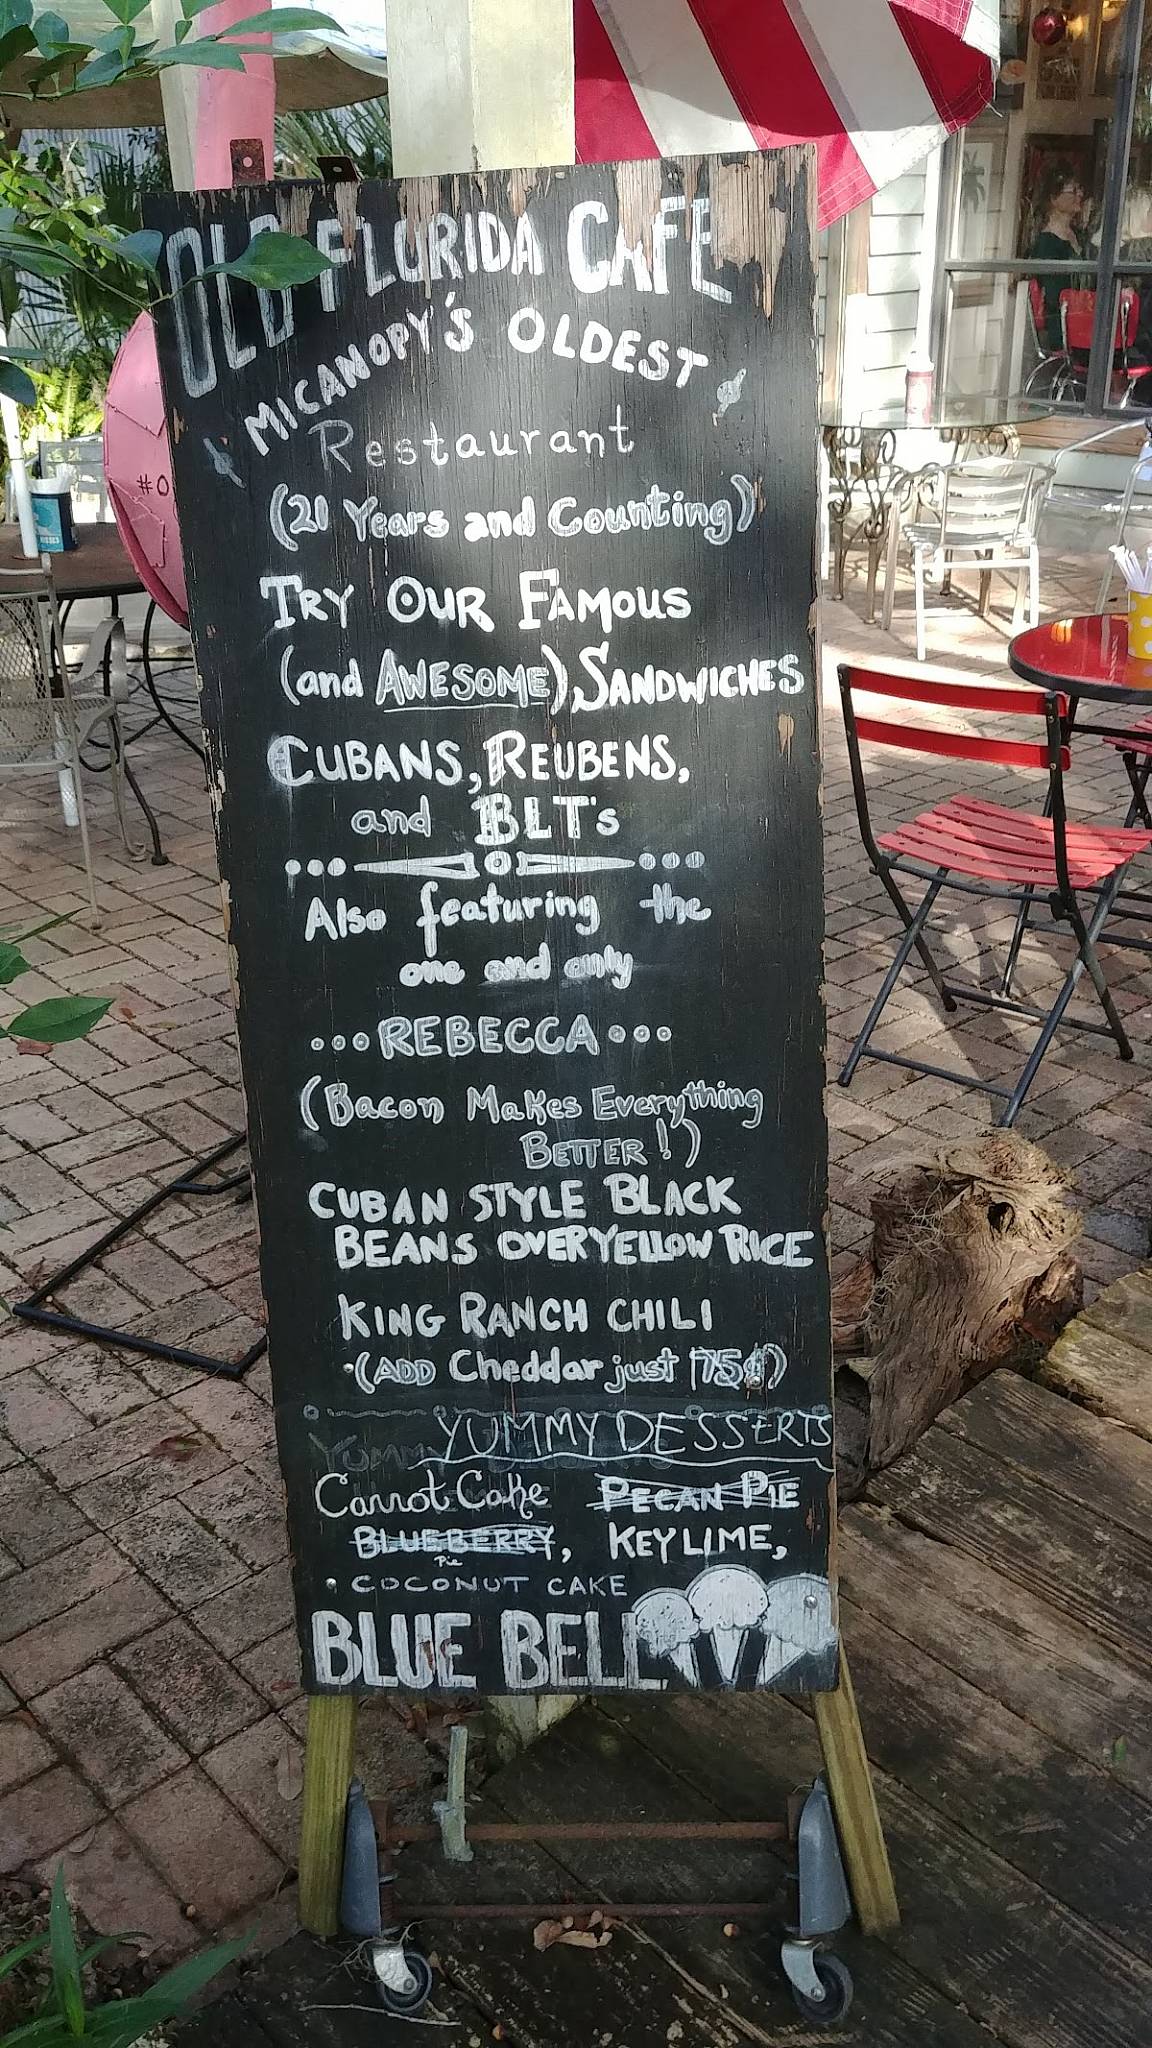 OLD FLORIDA CAFE
MICANOPY'S OLDEST
Restaurant
(21 Years and Counting)
TRY OUR FAMOUS
(and AWESOME) SANDWICHES
CUBANS, REUBENS,
and BLT's
Also featuring the
one and only
...REBECCA...
(Bacon Makes Everything
BETTER!)
CUBAN STYLE BLACK
BEANS OVER YELLOW RICE
KING RANCH CHILI
(ADD Cheddar just 75¢)
YUMMY DESSERTS
Carrot Cake PECAN PIE
BLUEBERRY, KEY LIME,
Pie
COCONUT CAKE
BLUE BELL
#0